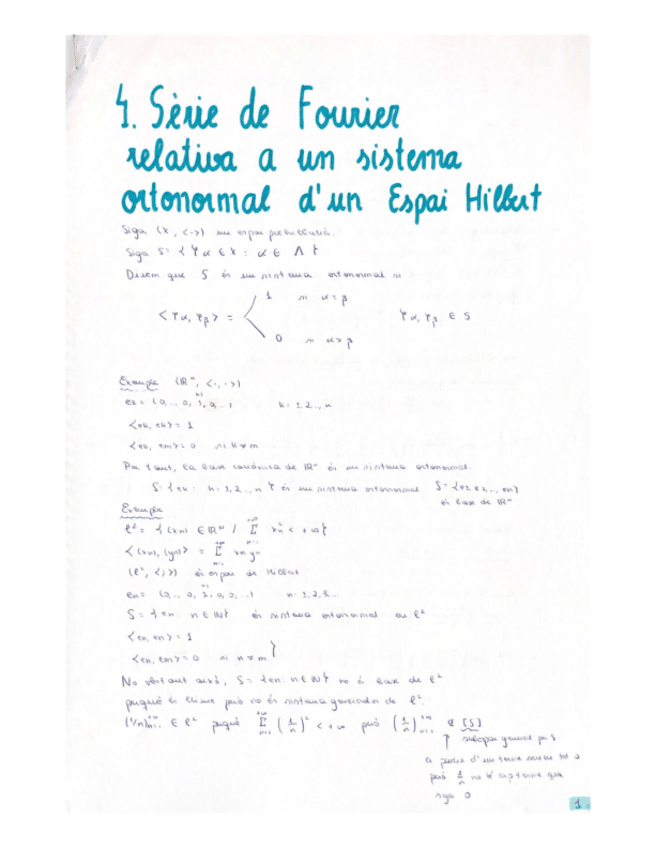 4. Sèrie de Fourier
relativa a un sistema
ortonormal d'un Espai Hilbert
Siga (X, <·,·>) un espai prehilbertià.
Siga S = { φα ∈ X : α ∈ Λ }
Direm que S és un sistema ortonormal si
<φα, φβ> = 1 si α = β
0 si α ≠ β
φα, φβ ∈ S
Example (ℝⁿ, <·,·>)
k = 1, 2, ..., n
<ek, ek> = 1
<ek, em> = 0 si k ≠ m
Per tant, la base canònica de ℝⁿ és un sistema ortonormal.
S = { ek : k = 1, 2, ..., n } és un sistema ortonormal S = {e1, e2, ..., en}
és base de ℝⁿ
Example
ℓ² = { (xn) ∈ ℝ^ℕ / Σ xn² < +∞ }
<(xn), (yn)> = Σ xn yn
(ℓ², <,>) és espai de Hilbert
n = 1, 2, 3...
S = { en : n ∈ ℕ } és sistema ortonormal en ℓ²
<en, en> = 1
<en, em> = 0 si n ≠ m }
No obstant això, S = {en : n ∈ ℕ} no és base de ℓ²
perquè és lliure però no és sistema generador de ℓ².
(1/n) ∈ ℓ² perquè Σ (1/n)² < +∞ però (1/n) ∉ [S]
↑ subespai generat per S
a partir d'un terme
però 1/n no té cap terme que
siga 0
1